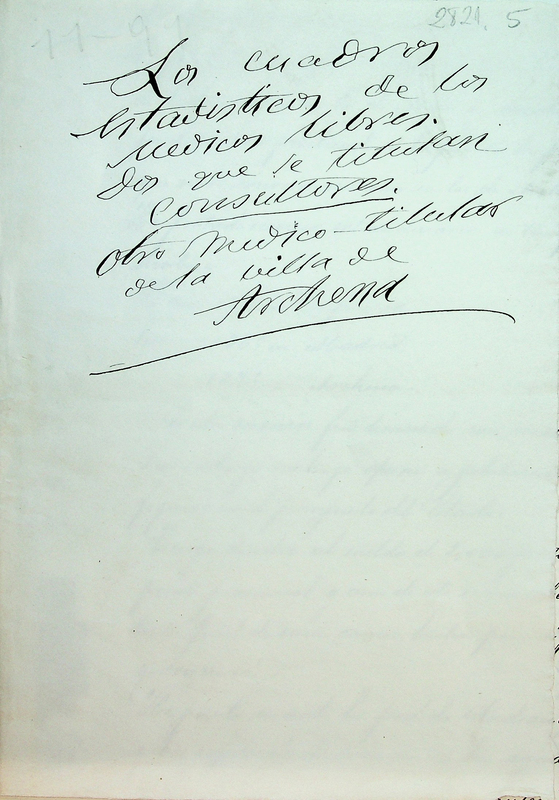 2821. 5
11-91
Los cuadros
estadisticos de los
Medicos libres.
Dos que se titulan
Consultores.
Otro Medico-titular
de la villa de
Archena